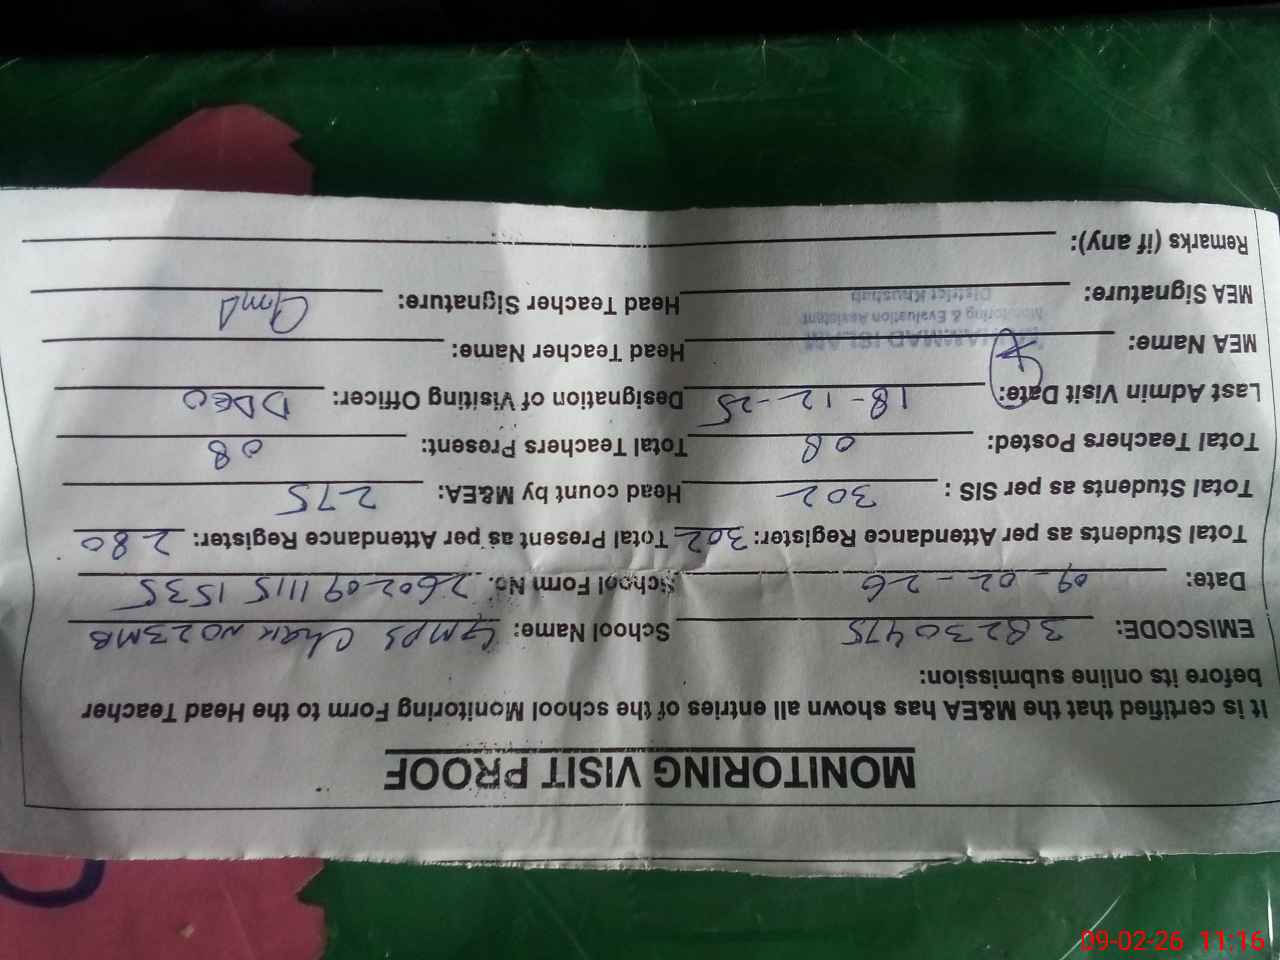 MONITORING VISIT PROOF
It is certified that the M&EA has shown all entries of the school Monitoring Form to the Head Teacher
before its online submission:
EMISCODE: 38230475 School Name: GMPS Chak NO23MB
Date: 09-02-26 School Form No. 2602091115 1535
Total Students as per Attendance Register: 302 Total Present as per Attendance Register: 280
Total Students as per SIS : 302 Head count by M&EA: 275
Total Teachers Posted: 08 Total Teachers Present: 08
Last Admin Visit Date: 18-12-25 Designation of Visiting Officer: DDEO
MEA Name: MUHAMMAD ISLAM Head Teacher Name:
Monitoring & Evaluation Assistant
District Khushab
MEA Signature: Head Teacher Signature:
Remarks (if any):
09-02-26 11:16